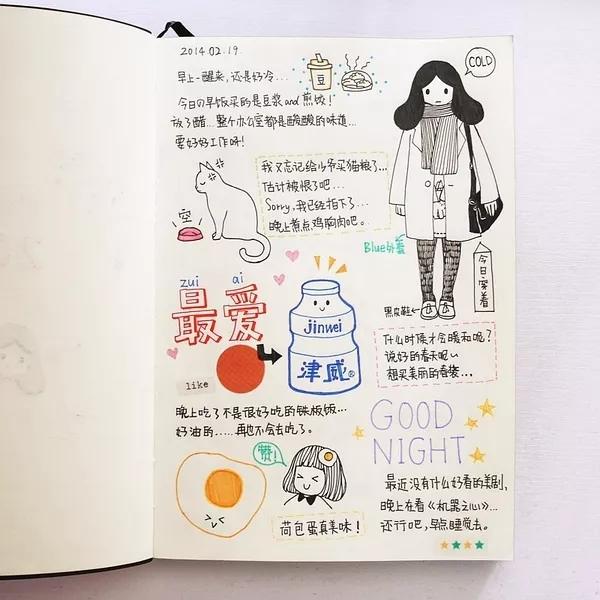 2014.02.19.
早上一醒来，还是好冷...
今日の早饭买的是豆浆and煎饺！
放了醋...整个办公室都是酸酸的味道...
要好好工作呀！
豆
COLD
我又忘记给少爷买猫粮了...
估计被恨了吧...
Sorry，我已经拍下了...
晚上煮点鸡胸肉吧。
空
Blue外套
今日·穿着
黑皮鞋
zui ai
最爱
like
jinwei
津威®
什么时候才会暖和呢？
说好的春天呢~
想买美丽的春装...
晚上吃了不是很好吃的铁板饭...
好油的.....再也不会去吃了。
GOOD
NIGHT
赞！
荷包蛋真美味！
最近没有什么好看的美剧，
晚上在看《机器之心》...
还行吧，早点睡觉去。